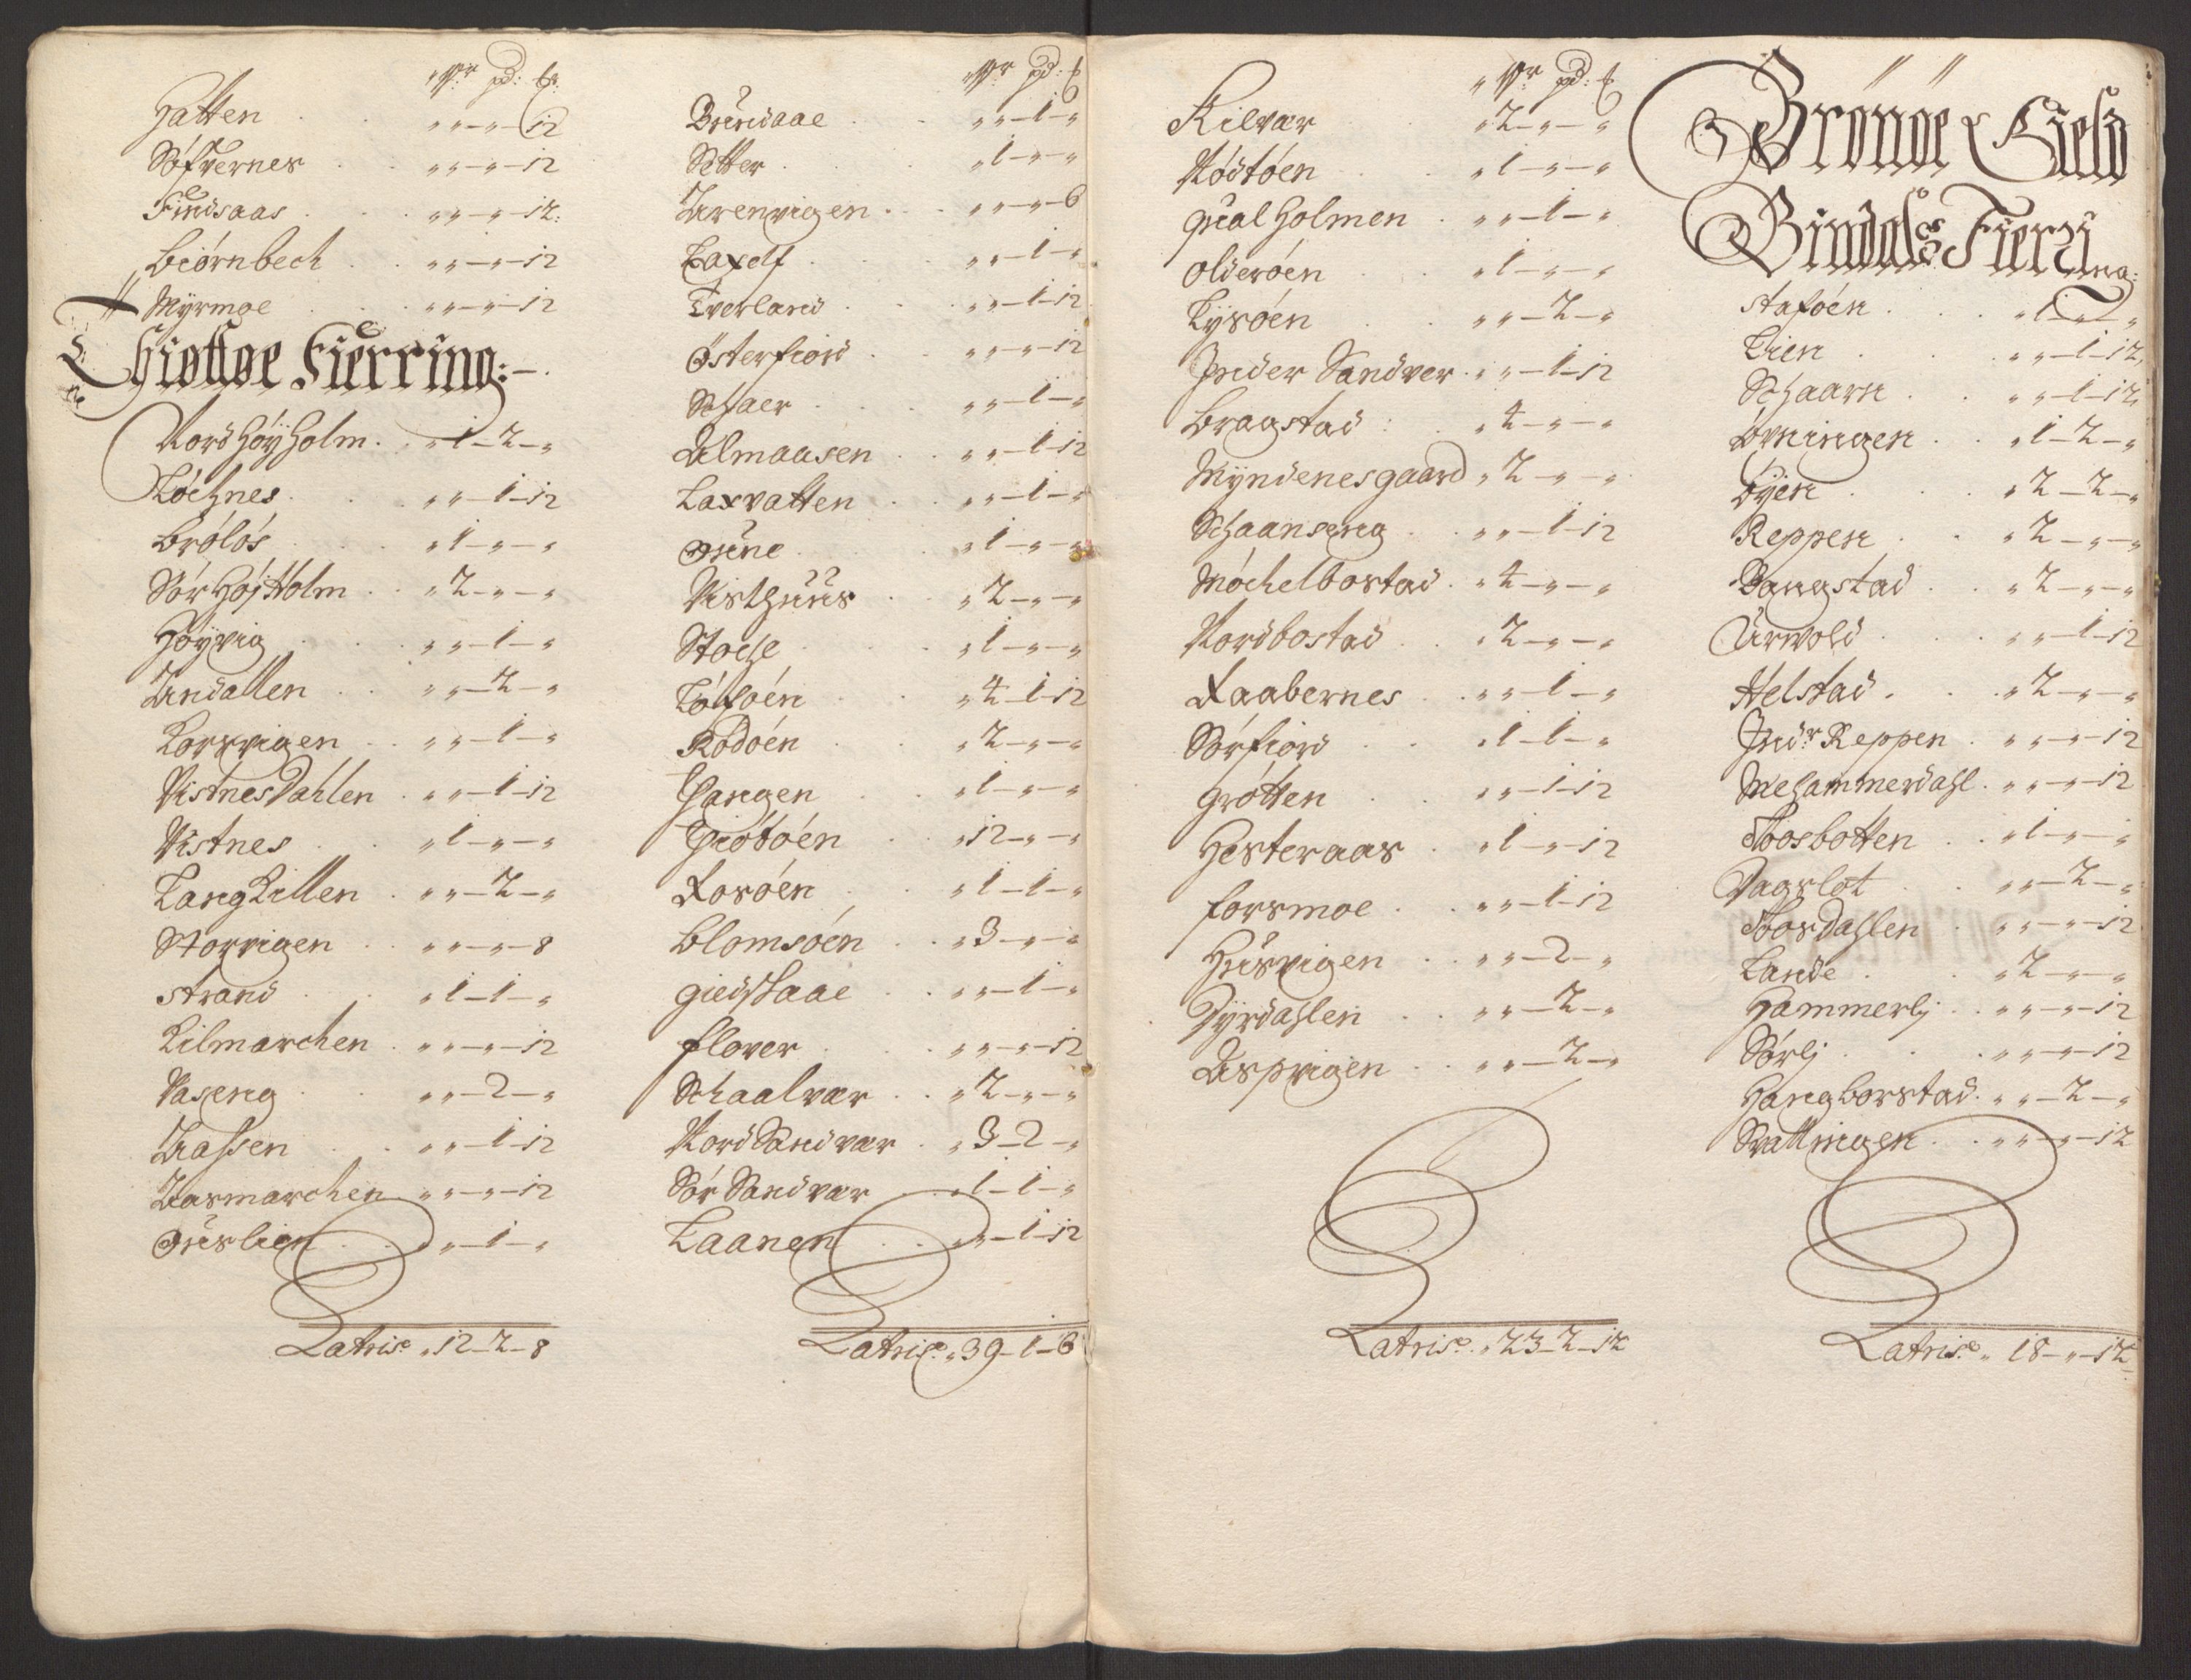 Wr pd: lb
Hatten . . „ „ – „ – 12
Söfvernes . . „ „ – „ – 12
Findsaas . . „ „ – „ – 12:
Biörnbech . . „ „ – „ – 12
Myrmoe . . „ „ – „ – 12
Thiøttøe Fierring:–.
Nord Höyholm . „ 1 – 2 – „
Löchnes . . „ „ – 1 – 12
Brölös . . „ 1 – „ – „
Sör Höj Holm . . „ 2 – „ – „
Höyvig . . „ „ – 1 – „
Andallen . . „ „ – 2 – „
Korsvigen . . „ „ – 1 – „
Vistnes Dahlen . „ „ – 1 – 12
Vistnes . . „ 1 – „ – „
Lang Killen . „ „ – 2 – „
Storvigen . . „ „ – „ – 8
Strand . . „ 1 – 1 – „
Kilmarchen . „ „ – „ – 12
Vaseng . . „ „ – 2 – „
Aassen . . „ „ – 1 – 12
Aasmarchen „ „ – „ – 12
Huslien . . „ „ – 1 – „
Latris: „ 12 – 2 – 8
Wr pd: lb
Brundaae . . „ „ – 1 – „
Setter . . „ 1 – „ – „
Urenvigen . . „ „ – „ – 6
Laxelf . . „ „ – 1 – „
Tverland . . „ „ – 1 – 12
Østerfiord . „ „ – „ – 12
Schaer . . „ „ – 1 – „
Almaasen . . „ „ – 1 – 12
Laxvatten . . „ „ – 1 – „
Oune . . „ 1 – „ – „
Visthuus . . „ 2 – „ – „
Stoche . . „ 1 – „ – „
Löföen . . „ 4 – 1 – 12
Rödöen . . „ 2 – „ – „
Hangen . . „ 1 – „ – „
Thiötöen . . „ 12 – „ – „
Rosöen . . „ 1 – 1 – „
Blomsöen . . „ 3 – „ – „
Giedshaae . . „ „ – 1 – „
Flover . . „ „ – „ – 12
Schaalvær . . „ 2 – „ – „
Nord Sandvær . „ 3 – 2 – „
Sör Sandvær . „ 1 – 1 – „
Laanen . . „ „ – 1 – 12
Latris: „ 39 – 1 – 6
Wr pd: lb
Kilvær „ 2 – „ – „
Rödtöen . . „ 1 – „ – „
Hualholmen . „ „ – 1 – „
Olderöen . . „ 1 – „ – „
Lysöen . . „ „ – 2 – „
Inder Sandver . „ „ – 1 – 12
Bragstad : . „ 4 – „ – „
Myndenesgaard „ 2 – „ – „
Schaanseng . „ „ – 1 – 12
Möchelbostad . „ 4 – „ – „
Nordbostad . . „ 2 – „ – „
Raabernes . . „ „ – 1 – „
Sörfiord . . „ 1 – 1 – „
Grötten . . „ „ – 1 – 12
Hesteraas . „ 1 – „ – 12
Forsmoe . . „ „ – 1 – 12
Husvigen . . „ „ – 2 – „
Dyrdahlen . . „ „ – 2 – „
Aspvigen . . „ „ – 2 – „
Latris: „ 23 – 2 – 12
Brönöe Gield
Bindals Fierring:
Staföen . . „ 1 – „ – „
Lien . . „ „ – 1 – 12
Schaarn . . „ „ – 1 – 12
Övningen . . „ 1 – 2 – „
Byen . . „ 2 – 2 – „
Reppen . . „ 2 – „ – „
Bangstad . . „ 2 – „ – „
Urvold . . „ „ – 1 – 12
Helstad . . „ 2 – „ – „
Indr Reppen . „ „ – „ – 12
Mehammerdahl . „ „ – „ – 12
Toosbotten . . „ 1 – „ – „
Vagslot . . „ „ – 2 – „
Toosdahlen . „ „ – „ – 12
Lande . . „ 2 – „ – „
Hammerlj . . „ „ – „ – 12
Sörlj . . „ „ – „ – 12
Hangborstad . „ „ – 2 – „
Svattingen . . „ „ – „ – 12
Latris: „ 18 – „ – 12